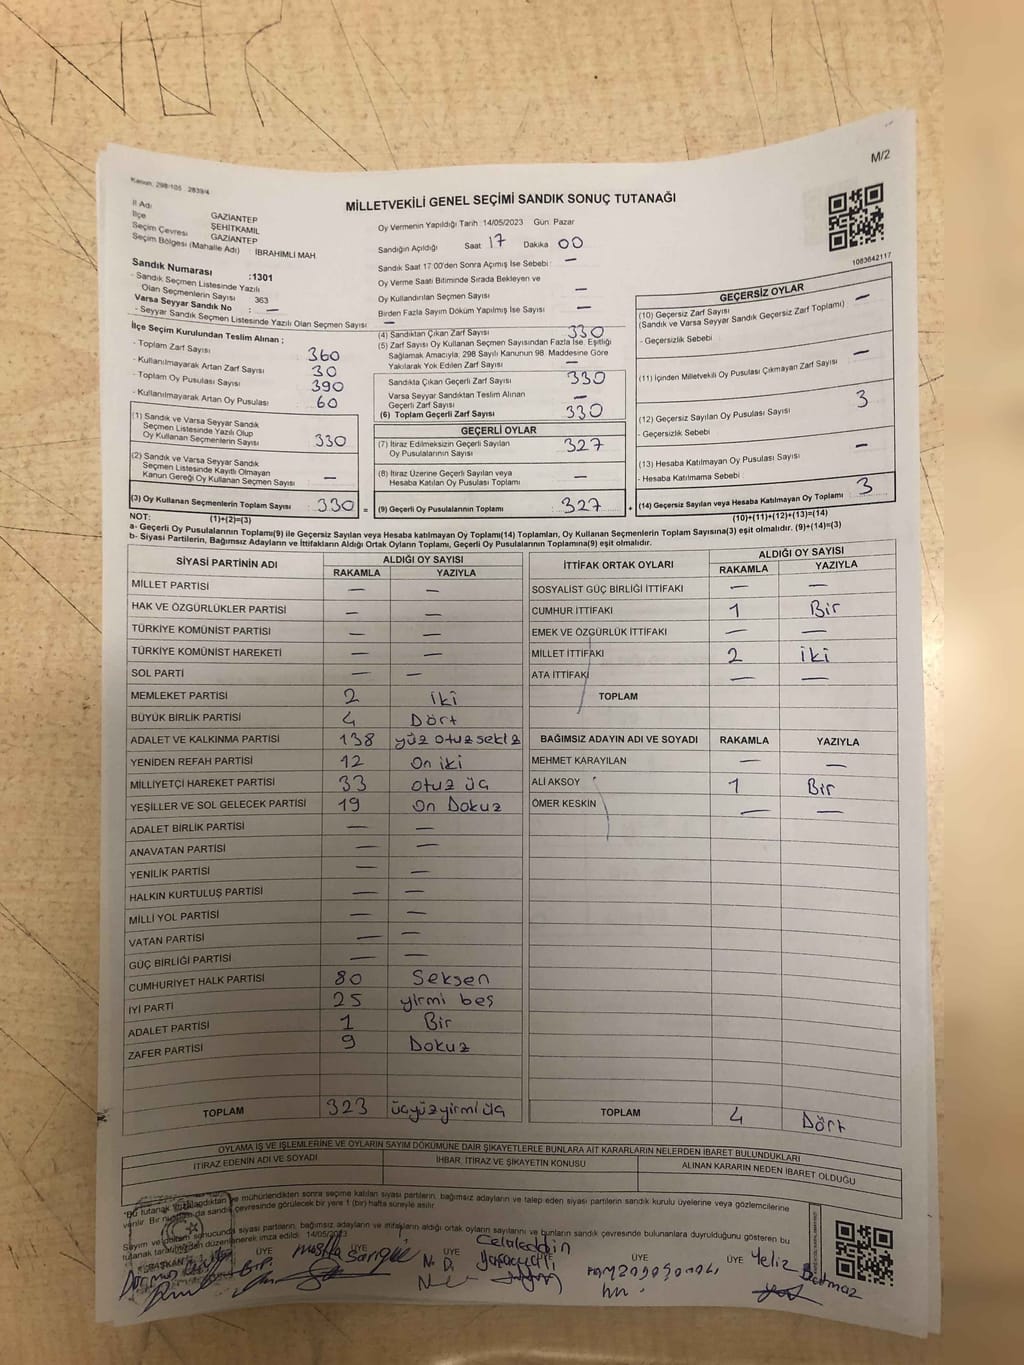 M/2
Kanun: 298/105 2839/4
MİLLETVEKİLİ GENEL SEÇİMİ SANDIK SONUÇ TUTANAĞI
İl Adı GAZİANTEP
İlçe ŞEHİTKAMİL
Seçim Çevresi GAZİANTEP
Seçim Bölgesi (Mahalle Adı) : İBRAHİMLİ MAH.
Sandık Numarası :1301
- Sandık Seçmen Listesinde Yazılı
Olan Seçmenlerin Sayısı 363
Varsa Seyyar Sandık No : —
- Seyyar Sandık Seçmen Listesinde Yazılı Olan Seçmen Sayısı —
İlçe Seçim Kurulundan Teslim Alınan ;
- Toplam Zarf Sayısı 360
- Kullanılmayarak Artan Zarf Sayısı 30
- Toplam Oy Pusulası Sayısı 390
- Kullanılmayarak Artan Oy Pusulası 60
(1) Sandık ve Varsa Seyyar Sandık
Seçmen Listesinde Yazılı Olup
Oy Kullanan Seçmenlerin Sayısı 330
(2) Sandık ve Varsa Seyyar Sandık
Seçmen Listesinde Kayıtlı Olmayan
Kanun Gereği Oy Kullanan Seçmen Sayısı —
(3) Oy Kullanan Seçmenlerin Toplam Sayısı 330 =
(1)+(2)=(3)
Oy Vermenin Yapıldığı Tarih 14/05/2023 Gün Pazar
Sandığın Açıldığı Saat 17 Dakika 00
Sandık Saat 17:00'den Sonra Açımış İse Sebebi : —
Oy Verme Saati Bitiminde Sırada Bekleyen ve
Oy Kullandırılan Seçmen Sayısı —
Birden Fazla Sayım Döküm Yapılmış İse Sayısı —
(4) Sandıktan Çıkan Zarf Sayısı 330
(5) Zarf Sayısı Oy Kullanan Seçmen Sayısından Fazla İse, Eşitliği
Sağlamak Amacıyla, 298 Sayılı Kanunun 98. Maddesine Göre
Yakılarak Yok Edilen Zarf Sayısı —
Sandıkta Çıkan Geçerli Zarf Sayısı 330
Varsa Seyyar Sandıktan Teslim Alınan
Geçerli Zarf Sayısı —
(6) Toplam Geçerli Zarf Sayısı 330
GEÇERLİ OYLAR
(7) İtiraz Edilmeksizin Geçerli Sayılan
Oy Pusulalarının Sayısı 327
(8) İtiraz Üzerine Geçerli Sayılan veya
Hesaba Katılan Oy Pusulası Toplamı —
(9) Geçerli Oy Pusulalarının Toplamı 327 +
1083642117
GEÇERSİZ OYLAR
(10) Geçersiz Zarf Sayısı —
(Sandık ve Varsa Seyyar Sandık Geçersiz Zarf Toplamı)
- Geçersizlik Sebebi
(11) İçinden Milletvekili Oy Pusulası Çıkmayan Zarf Sayısı —
(12) Geçersiz Sayılan Oy Pusulası Sayısı 3
- Geçersizlik Sebebi
(13) Hesaba Katılmayan Oy Pusulası Sayısı —
- Hesaba Katılmama Sebebi
(14) Geçersiz Sayılan veya Hesaba Katılmayan Oy Toplamı 3
(10)+(11)+(12)+(13)=(14)
NOT:
a- Geçerli Oy Pusulalarının Toplamı(9) ile Geçersiz Sayılan veya Hesaba Katılmayan Oy Toplamı(14) Toplamları, Oy Kullanan Seçmenlerin Toplam Sayısına(3) eşit olmalıdır. (9)+(14)=(3)
b- Siyasi Partilerin, Bağımsız Adayların ve İttifakların Aldığı Ortak Oyların Toplamı, Geçerli Oy Pusulalarının Toplamına(9) eşit olmalıdır.
SİYASİ PARTİNİN ADI ALDIĞI OY SAYISI
RAKAMLA YAZIYLA
MİLLET PARTİSİ — —
HAK VE ÖZGÜRLÜKLER PARTİSİ — —
TÜRKİYE KOMÜNİST PARTİSİ — —
TÜRKİYE KOMÜNİST HAREKETİ — —
SOL PARTİ — —
MEMLEKET PARTİSİ 2 iki
BÜYÜK BİRLİK PARTİSİ 4 Dört
ADALET VE KALKINMA PARTİSİ 138 yüz otuz sekiz
YENİDEN REFAH PARTİSİ 12 On iki
MİLLİYETÇİ HAREKET PARTİSİ 33 otuz üç
YEŞİLLER VE SOL GELECEK PARTİSİ 19 On Dokuz
ADALET BİRLİK PARTİSİ — —
ANAVATAN PARTİSİ — —
YENİLİK PARTİSİ — —
HALKIN KURTULUŞ PARTİSİ — —
MİLLİ YOL PARTİSİ — —
VATAN PARTİSİ — —
GÜÇ BİRLİĞİ PARTİSİ — —
CUMHURİYET HALK PARTİSİ 80 Seksen
İYİ PARTİ 25 yirmi beş
ADALET PARTİSİ 1 Bir
ZAFER PARTİSİ 9 Dokuz
TOPLAM 323 üçyüzyirmi üç
İTTİFAK ORTAK OYLARI ALDIĞI OY SAYISI
RAKAMLA YAZIYLA
SOSYALİST GÜÇ BİRLİĞİ İTTİFAKI — —
CUMHUR İTTİFAKI 1 Bir
EMEK VE ÖZGÜRLÜK İTTİFAKI — —
MİLLET İTTİFAKI 2 iki
ATA İTTİFAKI — —
TOPLAM
BAĞIMSIZ ADAYIN ADI VE SOYADI RAKAMLA YAZIYLA
MEHMET KARAYILAN — —
ALİ AKSOY 1 Bir
ÖMER KESKİN — —
TOPLAM 4 Dört
OYLAMA İŞ VE İŞLEMLERİNE VE OYLARIN SAYIM DÖKÜMÜNE DAİR ŞİKAYETLERLE BUNLARA AİT KARARLARIN NELERDEN İBARET BULUNDUKLARI
İTİRAZ EDENİN ADI VE SOYADI İHBAR, İTİRAZ VE ŞİKAYETİN KONUSU ALINAN KARARIN NEDEN İBARET OLDUĞU
"Bu tutanak imzalandıktan ve mühürlendikten sonra seçime katılan siyasi partilerin, bağımsız adayların ve talep eden siyasi partilerin sandık kurulu üyelerine veya gözlemcilerine
verilir. Bir da sandık çevresinde görülecek bir yere 1 (bir) hafta süreyle asılır
Sayım ve döküm sonucunda siyasi partilerin, bağımsız adayların ve ittifakların aldığı ortak oyların sayılarını ve bunların sandık çevresinde bulunanlara duyrulduğunu gösteren bu
tutanak tarafımızdan düzenlenerek imza edildi. 14/05/2023
BAŞKAN ÜYE ÜYE ÜYE ÜYE ÜYE
Celaleddin
Yeliz